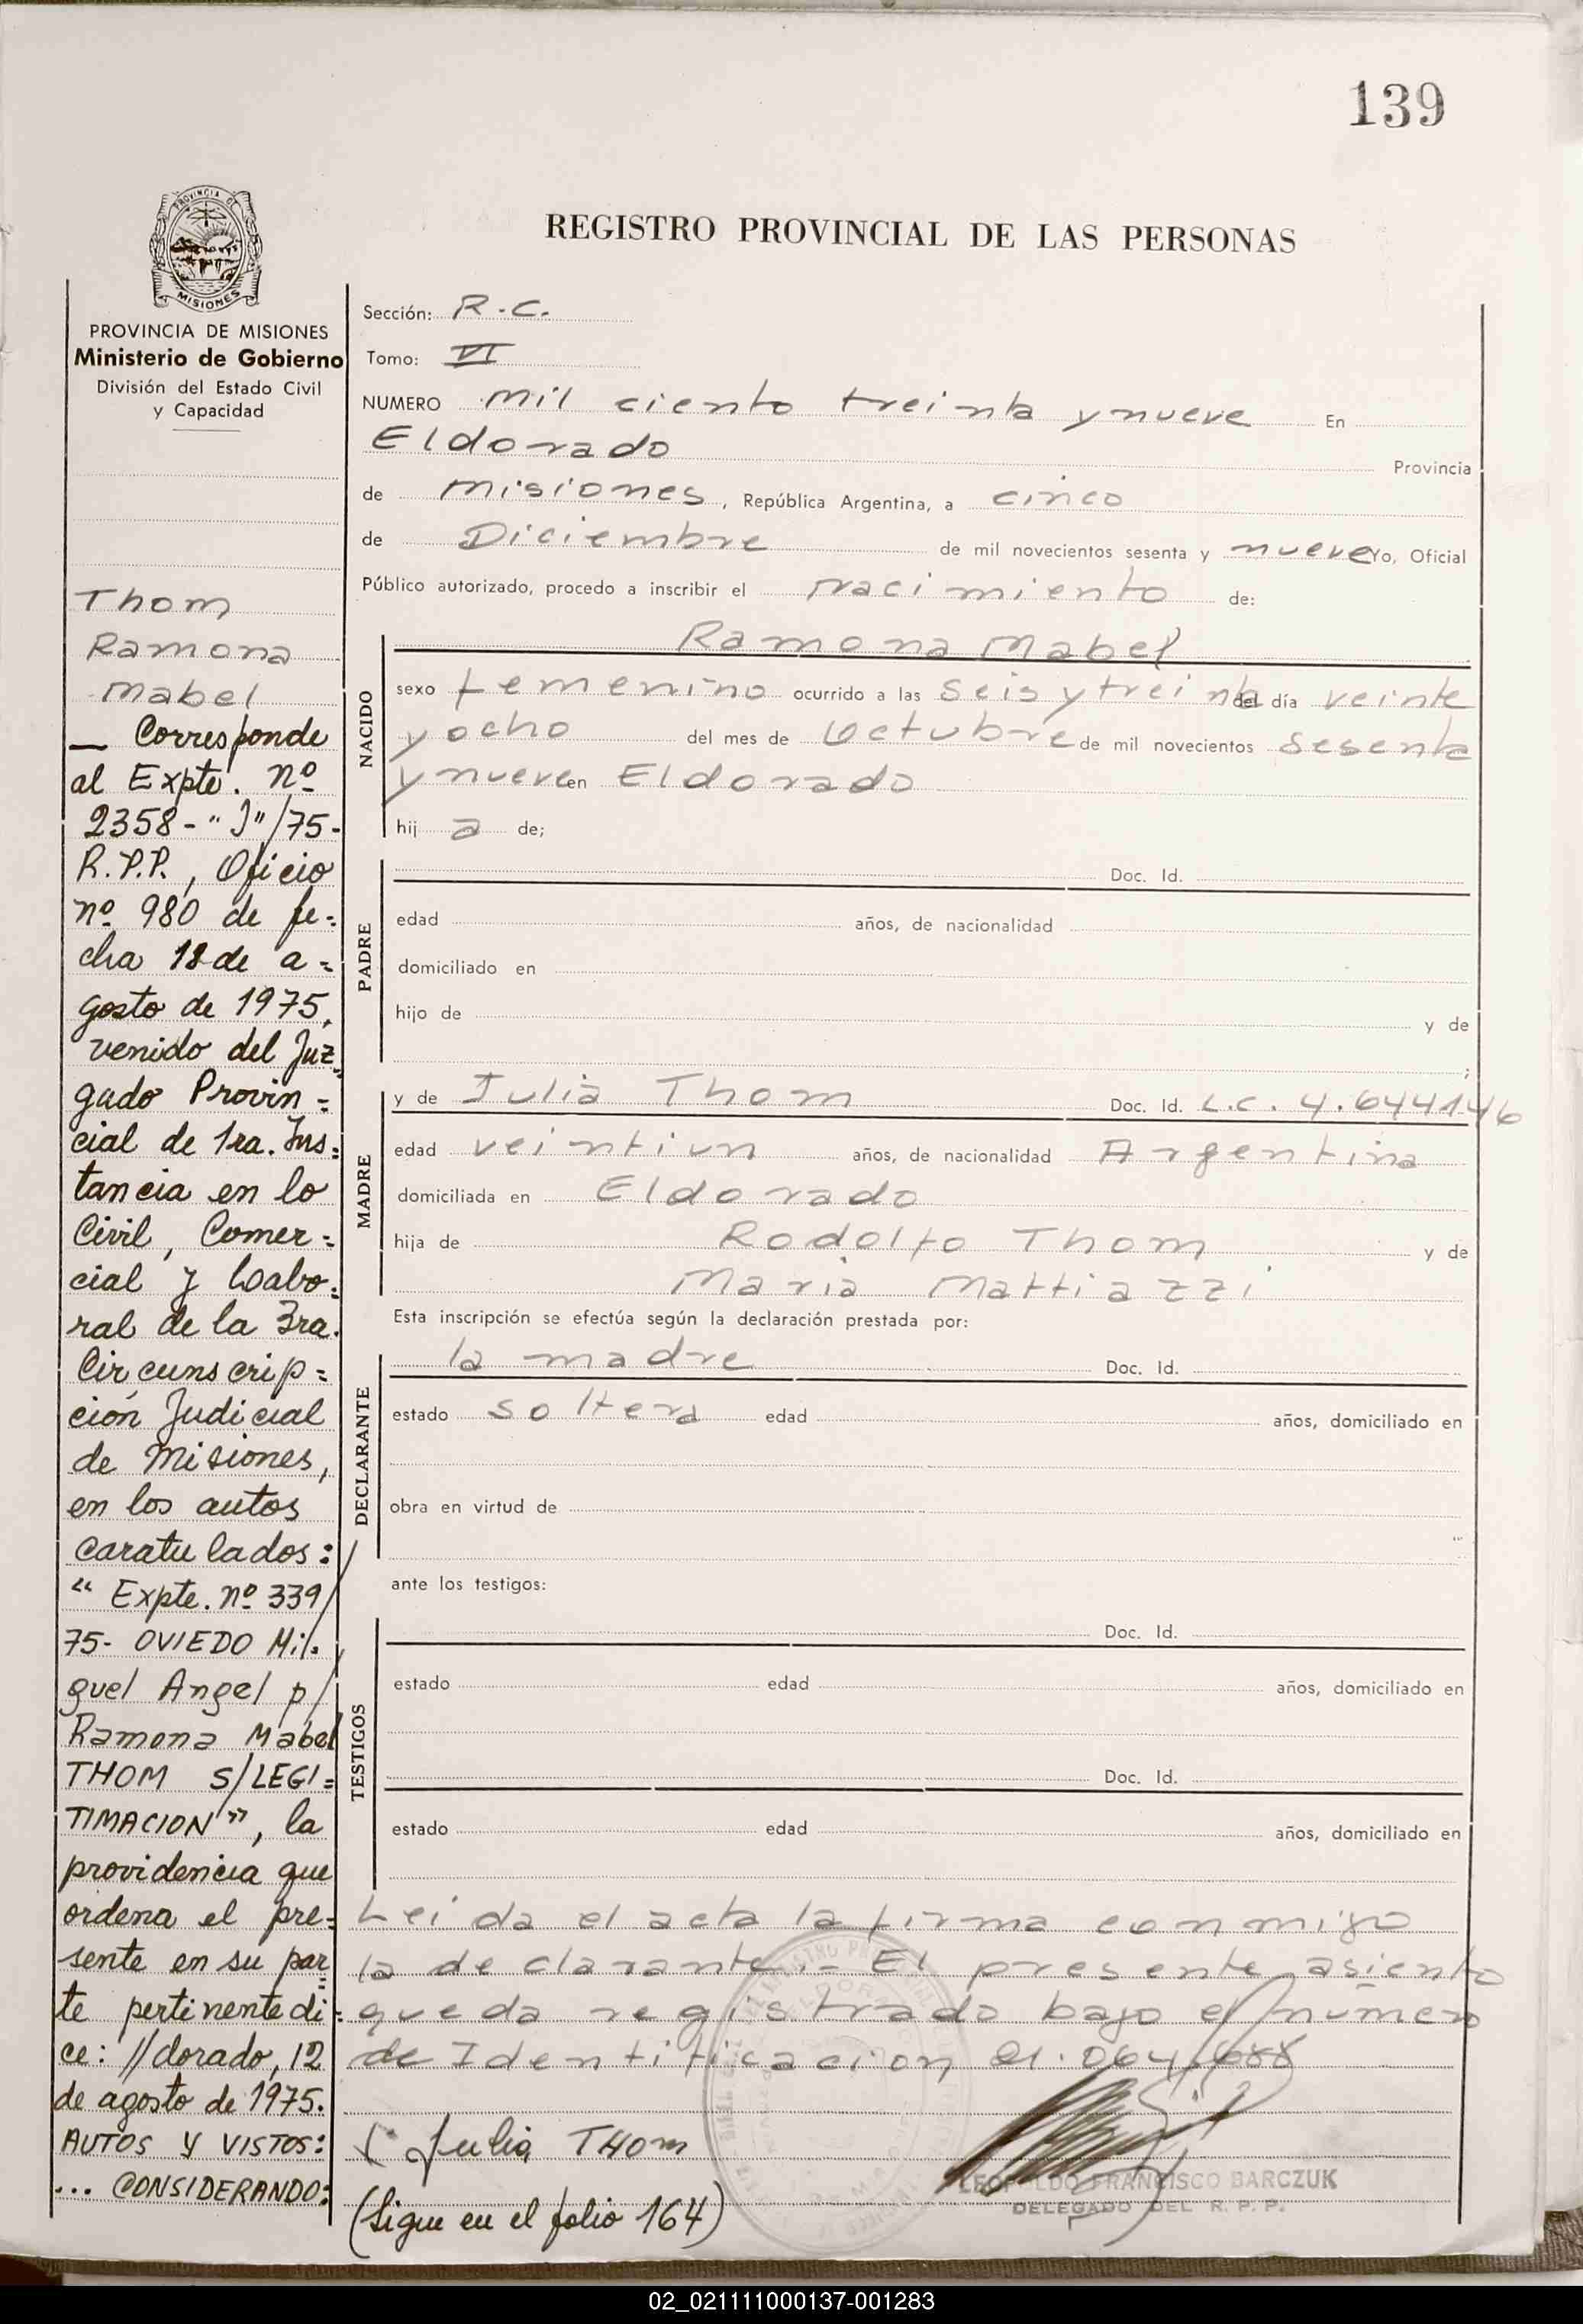 139
PROVINCIA DE
MISIONES
REGISTRO PROVINCIAL DE LAS PERSONAS
PROVINCIA DE MISIONES
Ministerio de Gobierno
División del Estado Civil
y Capacidad
Thom
Ramona
Mabel
— Corresponde
al Expte. nº
2358-"J"/75-
R.P.P., Oficio
nº 980 de fe=
cha 18 de a=
gosto de 1975,
venido del Juz=
gado Provin=
cial de 1ra. Ins=
tancia en lo
Civil, Comer=
cial y Labo=
ral de la 3ra.
Circunscrip=
ción Judicial
de Misiones,
en los autos
caratulados:
"Expte. nº 339/
75- OVIEDO Mi/.
guel Angel p/
Ramona Mabel
THOM S/LEGI=
TIMACION", la
providencia que
ordena el pre=
sente en su par=
te pertinente di=
ce: //dorado, 12
de agosto de 1975.
AUTOS Y VISTOS:
... CONSIDERANDO:
Sección: R.C.
Tomo: VI
NUMERO mil ciento treinta y nueve En
Eldorado Provincia
de Misiones, República Argentina, a cinco
de Diciembre de mil novecientos sesenta y nueve Yo, Oficial
Público autorizado, procedo a inscribir el nacimiento de:
NACIDO
Ramona Mabel
sexo femenino ocurrido a las seis y treinta del día veinte
y ocho del mes de Octubre de mil novecientos sesenta
y nueve en Eldorado
hij a de;
PADRE
Doc. Id.
edad años, de nacionalidad
domiciliado en
hijo de y de
;
MADRE
y de Julia Thom Doc. Id. L.C. 4.644146
edad veintiun años, de nacionalidad Argentina
domiciliada en Eldorado
hija de Rodolfo Thom y de
Maria Mattiazzi
Esta inscripción se efectúa según la declaración prestada por:
DECLARANTE
la madre Doc. Id.
estado soltera edad años, domiciliado en
obra en virtud de
ante los testigos:
TESTIGOS
Doc. Id.
estado edad años, domiciliado en
Doc. Id.
estado edad años, domiciliado en
Leida el acta la firma conmigo
la declarante.- El presente asiento
queda registrado bajo el número
de Identificacion 21.064.688
Julia THom
LEOPOLDO FRANCISCO BARCZUK
DELEGADO DEL R. P. P.
(Sigue en el folio 164)
02_021111000137-001283